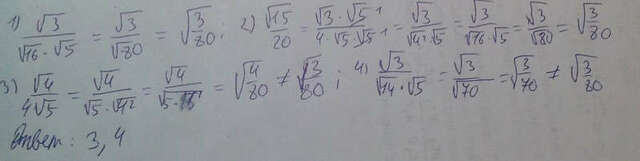 1) √3/(√16·√5) = √3/√80 = √(3/80); 2) √15/20 = (√3·√5¹)/(4·√5·√5¹) = √3/(√4²·√5) = √3/(√16·√5) = √3/√80 = √(3/80)
3) √4/(4√5) = √4/(√5·√4²) = √4/√(5·16) = √(4/80) ≠ √(3/80); 4) √3/(√14·√5) = √3/√70 = √(3/70) ≠ √(3/80)
Ответ: 3, 4